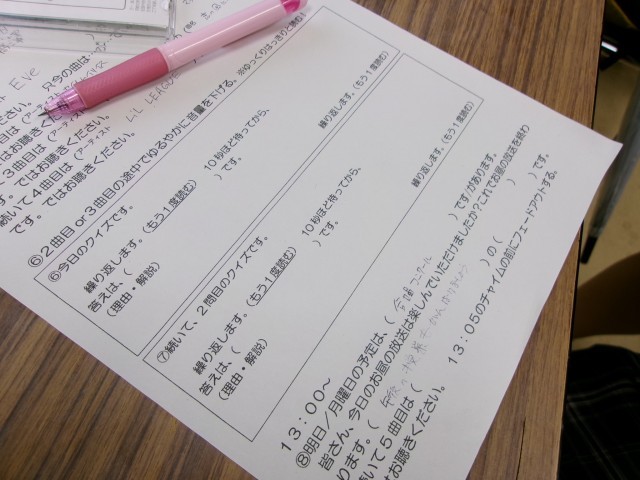 Eve
只今の曲は、
はお聴きください。
曲目は（アーティスト
はお聴きください。
3曲目は（アーティスト
す。ではお聴きください。
続いて4曲目は（アーティスト
です。ではお聴きください。
⑤2曲目or3曲目の途中でゆるやかに音量を下げる。※ゆっくりはっきりと読む
⑥今日のクイズです。
繰り返します。（もう1度読む） 10秒ほど待ってから、 繰り返します。（もう1度読む）
答えは、（ ）です。
（理由・解説）
⑦続いて、2問目のクイズです。
繰り返します。（もう1度読む） 10秒ほど待ってから、 繰り返します。（もう1度読む）
答えは、（ ）です。
（理由・解説）
13:00～
⑧明日／月曜日の予定は、（ ）です/があります。
皆さん、今日のお昼の放送は楽しんでいただけましたか?これでお昼の放送を終わ
ります。（ ）
いて5曲目は（ ）の（ ）です。
はお聴きください。 13:05のチャイムの前にフェードアウトする。